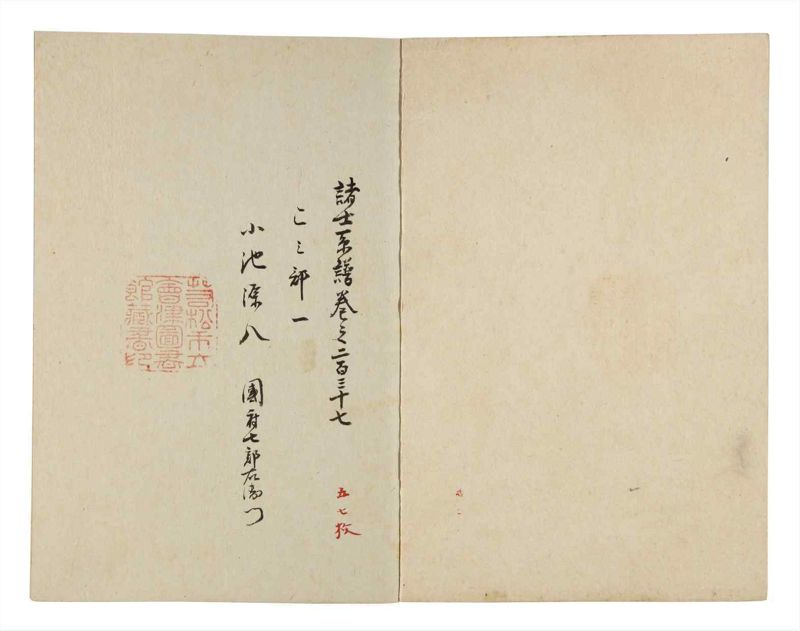 諸士系譜巻之二百三十七
五七枚
こ之部一
小池源八 國府七郎右衛門
若松市立
會津圖書
館藏書印